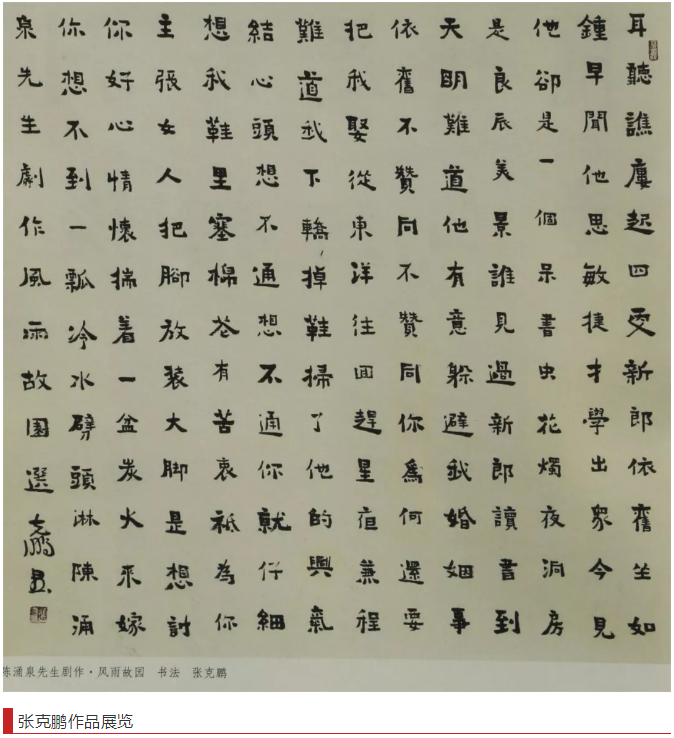 耳聽譙廔起四更新郎依舊坐如
鍾早聞他思敏捷才學出眾今見
他卻是一個呆書虫花燭夜洞房
是良辰美景誰見過新郎讀書到
天明難道他有意躲避我婚姻事
依舊不贊同不贊同你為何還要
把我娶從東洋往回趕星夜兼程
難道我下轎掉鞋掃了他的興氣
結心頭想不通想不通你就仔細
想我鞋里塞棉花有苦衷祗為你
主張女人把腳放裝大脚是想討
你好心情懷揣着一盆炭火來嫁
你想不到一瓢冷水劈頭淋陳涌
泉先生劇作風雨故園選克鵬書
陈涌泉先生剧作·风雨故园 书法 张克鹏
张克鹏作品展览